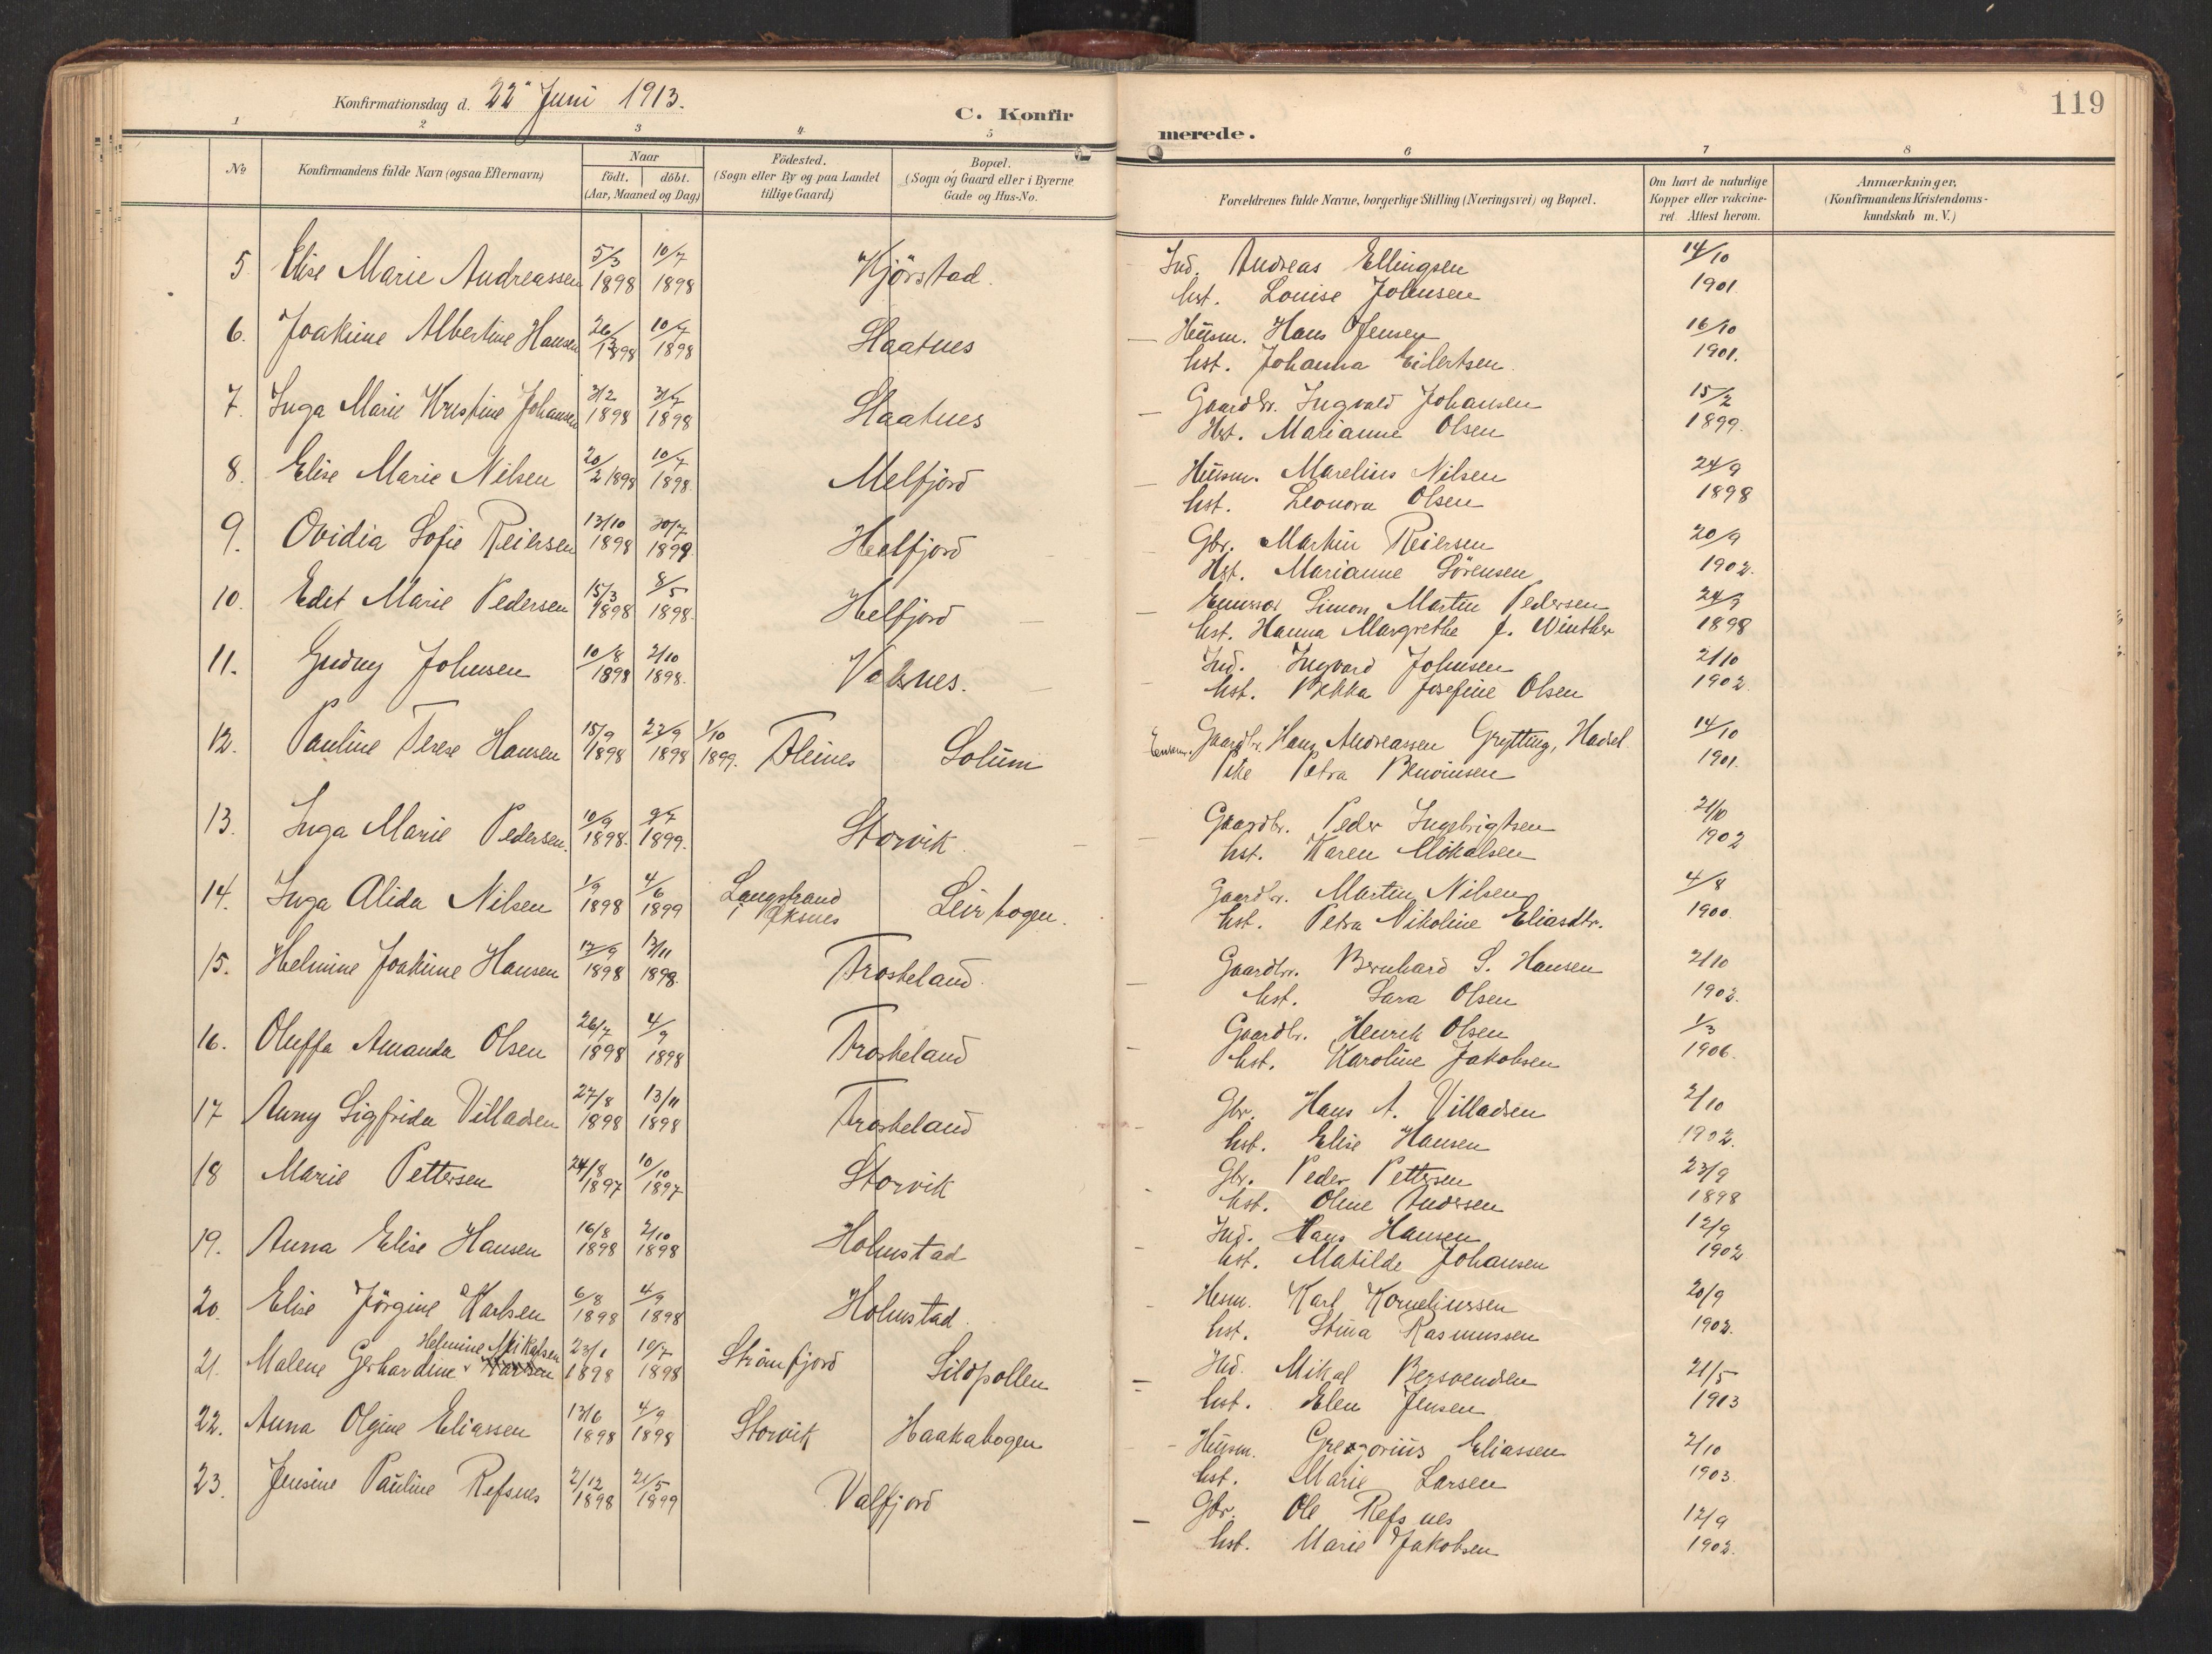 Konfirmationsdag d. 22 Juni 1913.
C. Konfir
merede.
119
1 2 3 4 5 6 7 8
No
Konfirmandens fulde Navn (ogsaa Efternavn)
Naar
födt. döbt.
(Aar, Maaned og Dag)
Födested.
(Sogn eller By og paa Landet
tillige Gaard)
Bopæl.
(Sogn og Gaard eller i Byerne
Gade og Hus-No.
Forældrenes fulde Navne, borgerlige Stilling (Næringsvei) og Bopæl.
Om havt de naturlige
Kopper eller vakcine-
ret Attest herom.
Anmærkninger.
(Konfirmandens Kristendoms-
kundskab m. V.)
5 Elise Marie Andreassen 5/3 1898 10/7 1898 Kjörstad.
Ind. Andreas Ellingsen 14/10
hst. Louise Johnsen 1901
6. Joakime Albertine Hansen 26/3 1898 10/7 1898 Slaatnes
Husm. Hans Jensen 16/10
hst. Johanna Eilertsen 1901.
7. Inga Marie Kristine Johansen 3/2 1898 3/7 1898 Slaatnes
Gaardbr. Ingvald Johansen 15/2
Hst. Marianne Olsen 1899.
8. Elise Marie Nilsen 20/2 1898 10/7 1898 Melfjord
Husm. Marelius Nilsen 24/9
hst. Leonora Olsen 1898
9. Ovidia Sofie Reiersen 13/10 1898 30/7 1899 Helfjord
Gbr. Martin Reiersen 20/9
Hst. Marianne Sörensen 1902.
10. Edet Marie Pedersen 15/3 1898 8/5 1898. Helfjord
Emissær Simon Martin Pedersen 24/9
hst. Hanna Margrethe f. Winther 1898
11. Gudny Johnsen 10/8 1898 2/10 1898. Valsnes.
Ind. Ingvard Johnsen 21/10
hst. Bekka Josefine Olsen 1902
12. Pauline Terese Hansen 15/9 1898 22/9 1898 1/10 1899. Fleines Solum
Gaardbr. Hans Andreassen Grytting, Hadsel 14/10
Pike Petra Benonisen 1901.
13. Inga Marie Pedersen. 10/9 1898. 9/7 1899. Storvik.
Gaardbr. Peder Ingebrigtsen 21/10
hst. Karen Mikalsen 1902
14. Inga Alida Nilsen 1/9 1898 4/6 1899 Langstrand i Öksnes Leirbogen.
Gaardbr. Martin Nilsen 4/8
hst. Petra Nikoline Eliasdtr. 1900.
15. Helmine Joakime Hansen 17/9 1898 13/11 1898. Froskeland.
Gaardbr. Bernhard S. Hansen 2/10
hst. Sara Olsen 1902.
16. Oluffa Amanda Olsen 26/7 1898 4/9 1898 Froskeland
Gaardbr. Henrik Olsen 1/3
hst. Karoline Jakobsen 1906.
17 Anny Sigfrida Villadsen 27/8 1898 13/11 1898 Froskeland
Gbr. Hans A. Villadsen 2/10
hst. Elise Hansen 1902.
18 Marie Pettersen 24/8 1897 10/10 1897 Storvik
Gbr. Peder Pettersen 23/9
hst. Oline Andersen 1898
19. Anna Elise Hansen 16/8 1898 2/10 1898 Holmstad
Ind. Hans Hansen 12/9
hst. Matilde Johansen 1902
20. Elise Jörgine Karlsen 6/8 1898 4/9 1898 Holmstad.
Husm. Karl Korneliussen 20/9
hst. Stina Rasmussen 1902.
Helmine Mikalsen
21. Malene Gerhardine 23/1 1898 10/7 1898 Strömfjord Sildpollen
Ind. Mikal Bersvendsen 21/5
hst. Elen Jensen 1913
22. Anna Olgine Eliassen 13/6 1898 4/9 1898 Storvik Haakabogen
Husm. Gregorius Eliassen 2/10
hst. Marie Larsen 1903.
23. Jensine Pauline Refsnes 2/12 1898 21/5 1899 Valfjord
Gbr. Ole Refsnes 12/9
hst. Marie Jakobsen 1902.